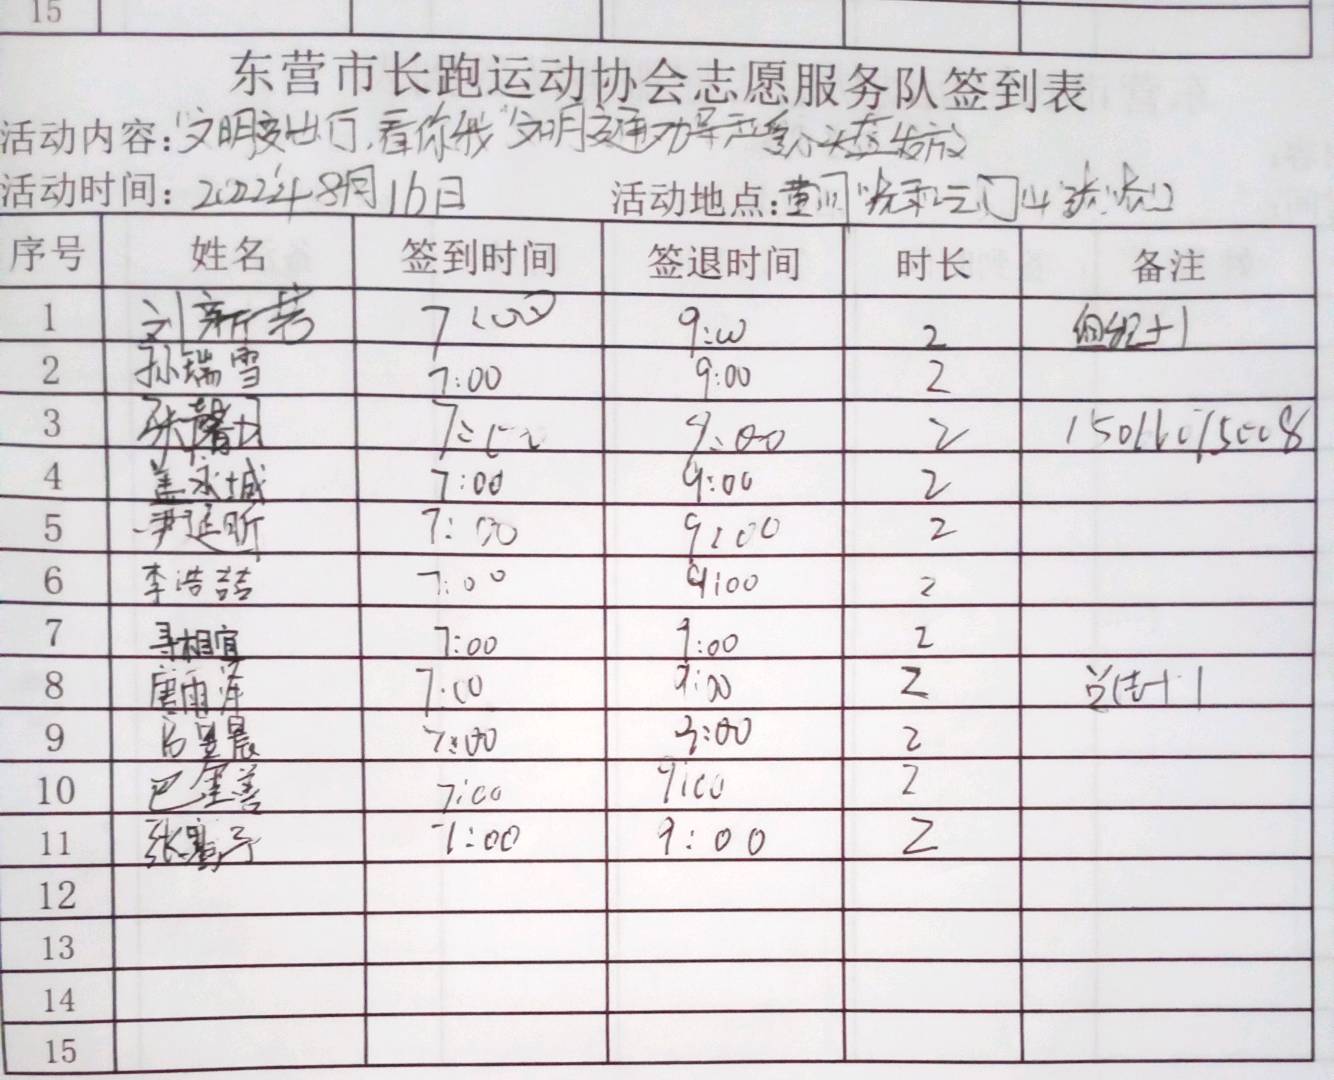 15
东营市长跑运动协会志愿服务队签到表
活动内容:"文明交出行,看你我"文明交通劝导
活动时间: 2022年8月16日 活动地点:
序号 姓名 签到时间 签退时间 时长 备注
1 刘新芳 7:00 9:00 2 组织+1
2 孙瑞雪 7:00 9:00 2
3 7:00 9:00 2
4 盖承城 7:00 9:00 2
5 尹延昕 7:00 9:00 2
6 李浩喆 7:00 9:00 2
7 寻相宜 7:00 9:00 2
8 唐雨泽 7:00 9:00 2 总结+1
9 7:00 9:00 2
10 7:00 9:00 2
11 7:00 9:00 2
12
13
14
15